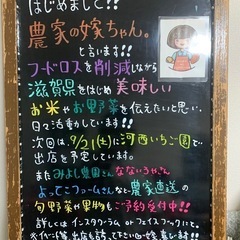 はじめまして!!
農家の嫁ちゃん。
と言います!!
フードロスを削減しながら
滋賀県をはじめ美味しい
お米やお野菜を伝えたいと思い、
日々活動しています!!
次回は、9/21(土)に河西いちご園で
出店を予定しています。
またみよし農園さんなないろやさん
よってこファームさんなど農家直送の
旬野菜や果物もご予約受付中!!
詳しくはインスタグラム or フェイスブックにて